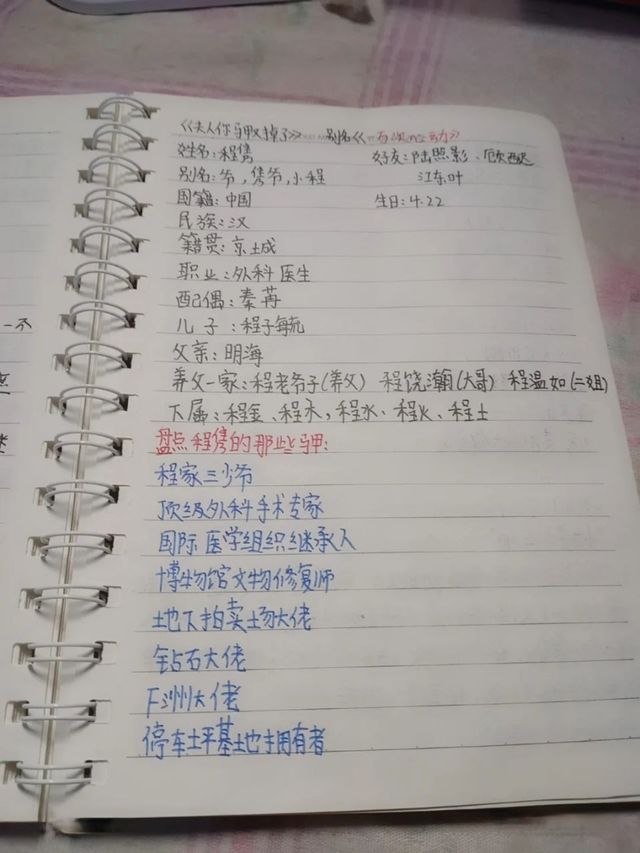 《夫人你马甲又掉了》……别名《一百次心动》
姓名:程隽 好友:陆照影、顾西迟
别名:爷,隽爷,小程 江东叶
国籍:中国 生日:4.22
民族:汉
籍贯:京城
职业:外科医生
配偶:秦苒
儿子:程子毓
父亲:明海
养父一家:程老爷子(养父) 程饶瀚(大哥) 程温如(二姐)
下属:程金、程木,程水、程火、程土
盘点程隽的那些马甲:
程家三少爷
顶级外科手术专家
国际医学组织继承人
博物馆文物修复师
地下拍卖场大佬
钻石大佬
F洲大佬
停车坪基地拥有者
一不